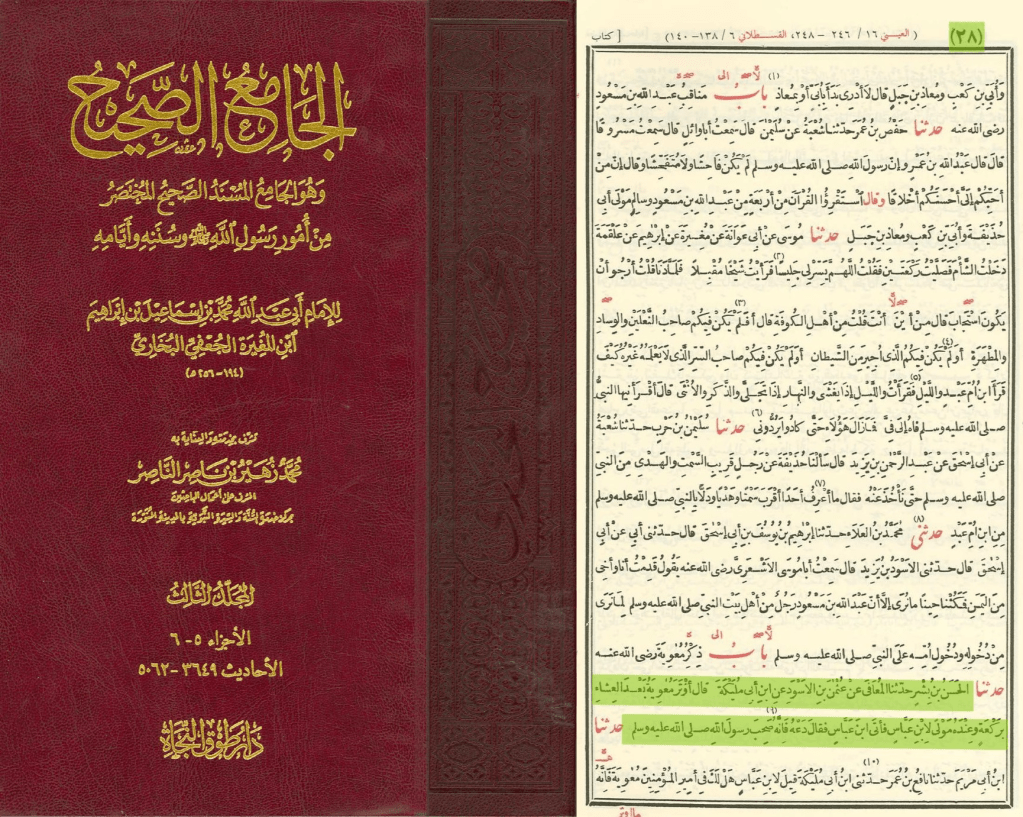 الجامع الصحيح
وهو الجامع المسند الصحيح المختصر
من أمور رسول الله ﷺ وسننه وأيامه
للإمام أبي عبد الله محمد بن إسماعيل بن إبراهيم
ابن المغيرة الجعفي البخاري
(١٩٤-٢٥٦ه)
تشرف بخدمته والعناية به
محمد زهير بن ناصر الناصر
المشرف على أعمال الباحثين
بمركز خدمة السنة والسيرة النبوية بالمدينة المنورة
المجلد الثالث
الأجزاء ٥-٦
الأحاديث ٣٦٤٩-٥٠٦٢
دار طوق النجاة
(٢٨) ( العيني ١٦ / ٢٤٦ - ٢٤٨، القسطلاني ٦ / ١٣٨ - ١٤٠) [ كتاب
وأبي بن كعب ومعاذ بن جبل قال لا أدري بدأ بأبي أو بمعاذ (١) لا باب إلى مناقب عبد الله بن مسعود
رضى الله عنه حدثنا حفص بن عمر حدثنا شعبة عن سليمن قال سمعت أبا وائل قال سمعت مسروقا
قال قال عبد الله بن عمرو إن رسول الله صلى الله عليه وسلم لم يكن فاحشا ولا متفحشا وقال إن من
أحبكم إلى أحسنكم أخلاقا وقال استقرؤا القرآن من أربعة من عبد الله بن مسعود وسالم مولى أبى
حذيفة وأبي بن كعب ومعاذ بن جبل حدثنا موسى عن أبي عوانة عن مغيرة عن إبرهيم عن علقمة
دخلت الشأم فصليت ركعتين فقلت اللهم يسر لي جليسا فرأيت شيخا مقبلا (٢) فلما دنا قلت أرجو أن
يكون استجاب قال من أين أنت قلت من أهل الكوفة قال أفلم (٣) يكن فيكم صاحب النعلين والوساد
والمطهرة أولم (٤) يكن فيكم الذي أجير من الشيطان أولم يكن فيكم صاحب السر الذي لا يعلمه غيره كيف
قرأ ابن أم عبد والليل فقرأت والليل (٥) إذا يغشى والنهار إذا تجلى والذكر والأنثى قال أقرأنيها النبي
صلى الله عليه وسلم فاه إلى في فما زال هؤلاء حتى كادوا يردوني (٦) حدثنا سليمن بن حرب حدثنا شعبة
عن أبي إسحق عن عبد الرحمن بن يزيد قال سألنا حذيفة عن رجل قريب السمت والهدى من النبي
صلى الله عليه وسلم حتى نأخذ عنه فقال ما أعرف (٧) أحدا أقرب سمتا وهديا ودلا بالنبي صلى الله عليه وسلم
من ابن أم عبد حدثني (٨) محمد بن العلاء حدثنا إبرهيم بن يوسف بن أبي إسحق قال حدثني أبي عن أبي
إسحق قال حدثني الأسود بن يزيد قال سمعت أبا موسى الأشعرى رضى الله عنه يقول قدمت أنا وأخي
من اليمن فمكثنا حينا ما نرى إلا أن عبد الله بن مسعود رجل من أهل بيت النبي صلى الله عليه وسلم لما نرى
من دخوله ودخول أمه على النبي صلى الله عليه وسلم لا باب إلى ذكر معوية رضى الله عنه
حدثنا الحسن بن بشر حدثنا المعافى عن عثمن بن الأسود عن ابن أبي مليكة قال أوتر معوية بعد العشاء
بركعة وعنده مولى لابن عباس فأتى ابن عباس فقال دعه فإنه (٩) صحب رسول الله صلى الله عليه وسلم حدثنا
ابن أبي مريم حدثنا نافع بن عمر حدثني ابن أبي مليكة قيل لابن عباس هل لك في أمير المؤمنين معوية (١٠) فإنه
ما أوتر